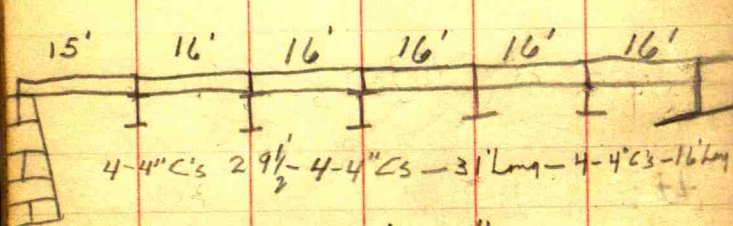 15' 16' 16' 16' 16' 16'
4-4"C's 2 9 1/2' - 4-4"Cs - 31' Long - 4-4"Cs - 16' Long